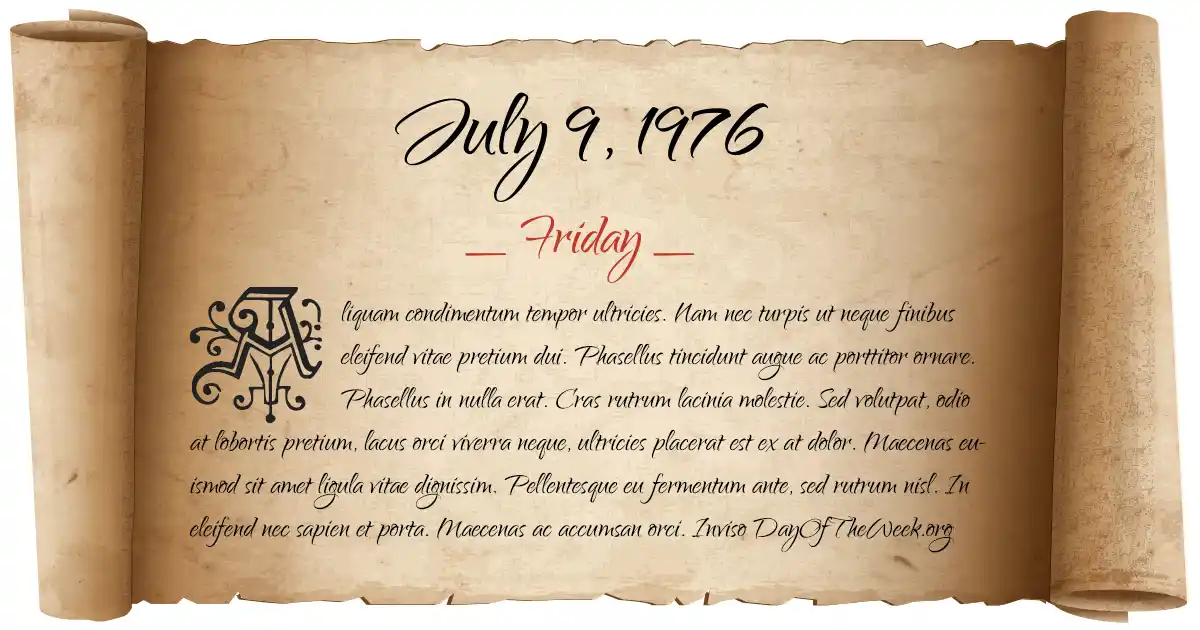 July 9, 1976
_ Friday _
Aliquam condimentum tempor ultricies. Nam nec turpis ut neque finibus
eleifend vitae pretium dui. Phasellus tincidunt augue ac porttitor ornare.
Phasellus in nulla erat. Cras rutrum lacinia molestie. Sed volutpat, odio
at lobortis pretium, lacus orci viverra neque, ultricies placerat est ex at dolor. Maecenas eu-
ismod sit amet ligula vitae dignissim. Pellentesque eu fermentum ante, sed rutrum nisl. In
eleifend nec sapien et porta. Maecenas ac accumsan orci. Inviso DayOfTheWeek.org